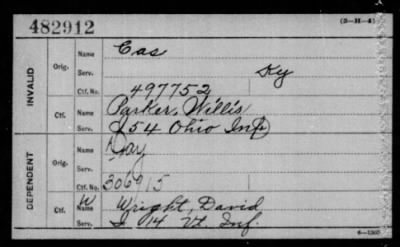 482912
(3-H-4)
INVALID
Orig.
Name Cas
Serv. Ky
Ctf. No. 497752
Ctf.
Name Parker, Willis
Serv. I 54 Ohio Inf
DEPENDENT
Orig.
Name Day
Serv.
Ctf. No. 306915
Ctf.
W Name Wright, David
Serv. I 14 Vt. Inf.